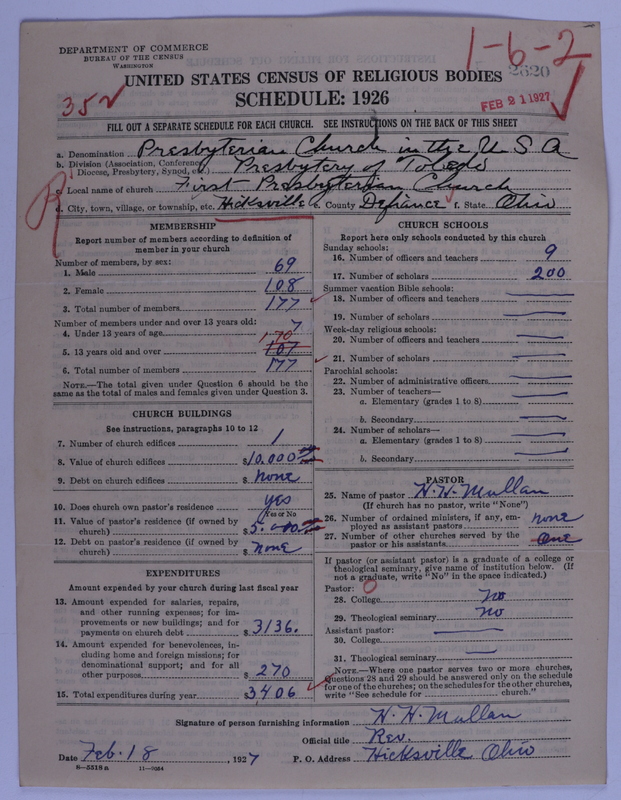 DEPARTMENT OF COMMERCE
BUREAU OF THE CENSUS
WASHINGTON
1-6-2
2620
UNITED STATES CENSUS OF RELIGIOUS BODIES
SCHEDULE: 1926
352
FEB 21 1927
FILL OUT A SEPARATE SCHEDULE FOR EACH CHURCH. SEE INSTRUCTIONS ON THE BACK OF THIS SHEET
a. Denomination Presbyterian Church in the U S A
b. Division (Association, Conference, Diocese, Presbytery, Synod, etc.) Presbytery of Toledo
c. Local name of church First Presbyterian Church
d. City, town, village, or township, etc. Hicksville e. County Defiance f. State Ohio
MEMBERSHIP
Report number of members according to definition of
member in your church
Number of members, by sex:
1. Male 69
2. Female 108
3. Total number of members 177
Number of members under and over 13 years old:
4. Under 13 years of age 7
170
5. 13 years old and over 107
6. Total number of members 177
NOTE.—The total given under Question 6 should be
same as the total of males and females given under Question 3.
CHURCH BUILDINGS
See instructions, paragraphs 10 to 12
7. Number of church edifices 1
8. Value of church edifices $10.000
9. Debt on church edifices $ none
10. Does church own pastor's residence yes
Yes or No
11. Value of pastor's residence (if owned by
church) $ 5.000
12. Debt on pastor's residence (if owned by
church) $ none
EXPENDITURES
Amount expended by your church during last fiscal year
13. Amount expended for salaries, repairs,
and other running expenses; for im-
provements or new buildings; and for
payments on church debt $ 3136.
14. Amount expended for benevolences, in-
cluding home and foreign missions; for
denominational support; and for all
other purposes $ 270
15. Total expenditures during year $ 3,406
CHURCH SCHOOLS
Report here only schools conducted by this church
Sunday schools:
16. Number of officers and teachers 9
17. Number of scholars 200
Summer vacation Bible schools:
18. Number of officers and teachers
19. Number of scholars
Week-day religious schools:
20. Number of officers and teachers
21. Number of scholars
Parochial schools:
22. Number of administrative officers
23. Number of teachers—
a. Elementary (grades 1 to 8)
b. Secondary
24. Number of scholars—
a. Elementary (grades 1 to 8)
b. Secondary
PASTOR
25. Name of pastor H. H. Mullan
(If church has no pastor, write "None")
26. Number of ordained ministers, if any, em-
ployed as assistant pastors none
27. Number of other churches served by the
pastor or his assistants One
If pastor (or assistant pastor) is a graduate of a college or
theological seminary, give name of institution below. (If
not a graduate, write "No" in the space indicated.)
Pastor: 0
28. College No
29. Theological seminary No
Assistant pastor:
30. College
31. Theological seminary
NOTE.—Where one pastor serves two or more churches,
Questions 28 and 29 should be answered only on the schedule
for one of the churches; on the schedules for the other churches,
write "See schedule for church."
Signature of person furnishing information H. H. Mullan
Official title Rev.
Date Feb. 18, 1927 P. O. Address Hicksville Ohio
8—5518a 11—9264